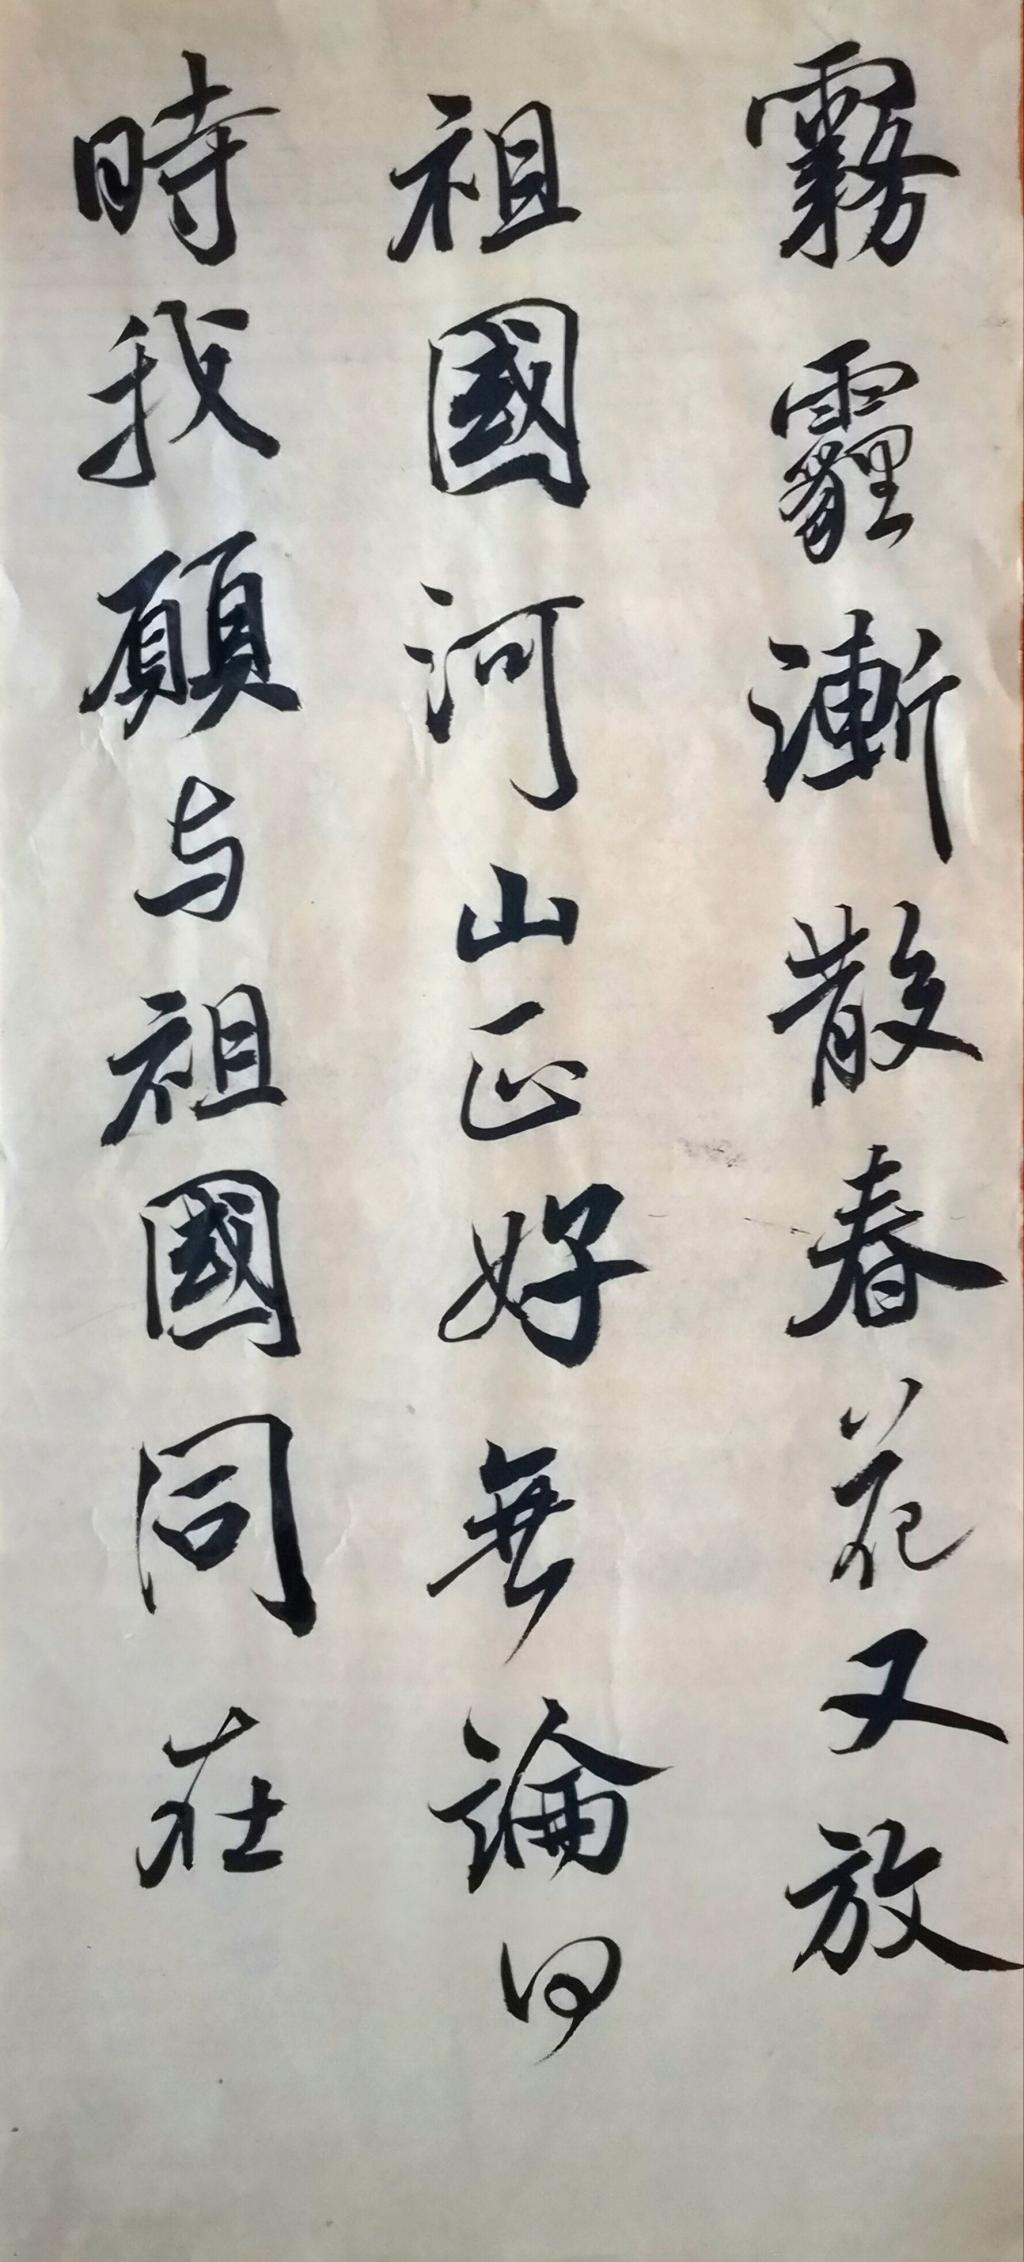 霧霾漸散春花又放
祖國河山正好無論何
時我願与祖國同在